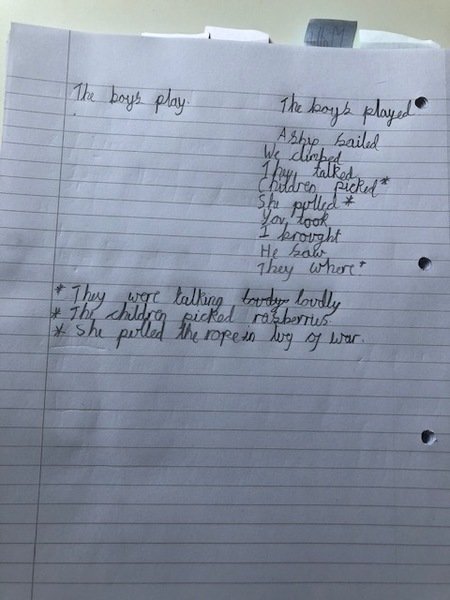 HSM
The boys play.
The boys played
A ship sailed
We climbed
They talked
Children picked*
She pulled *
You took
I brought
He saw
They where*
* They were talking loudly
* The children picked rasberrus.
* She pulled the rope in tug of war.